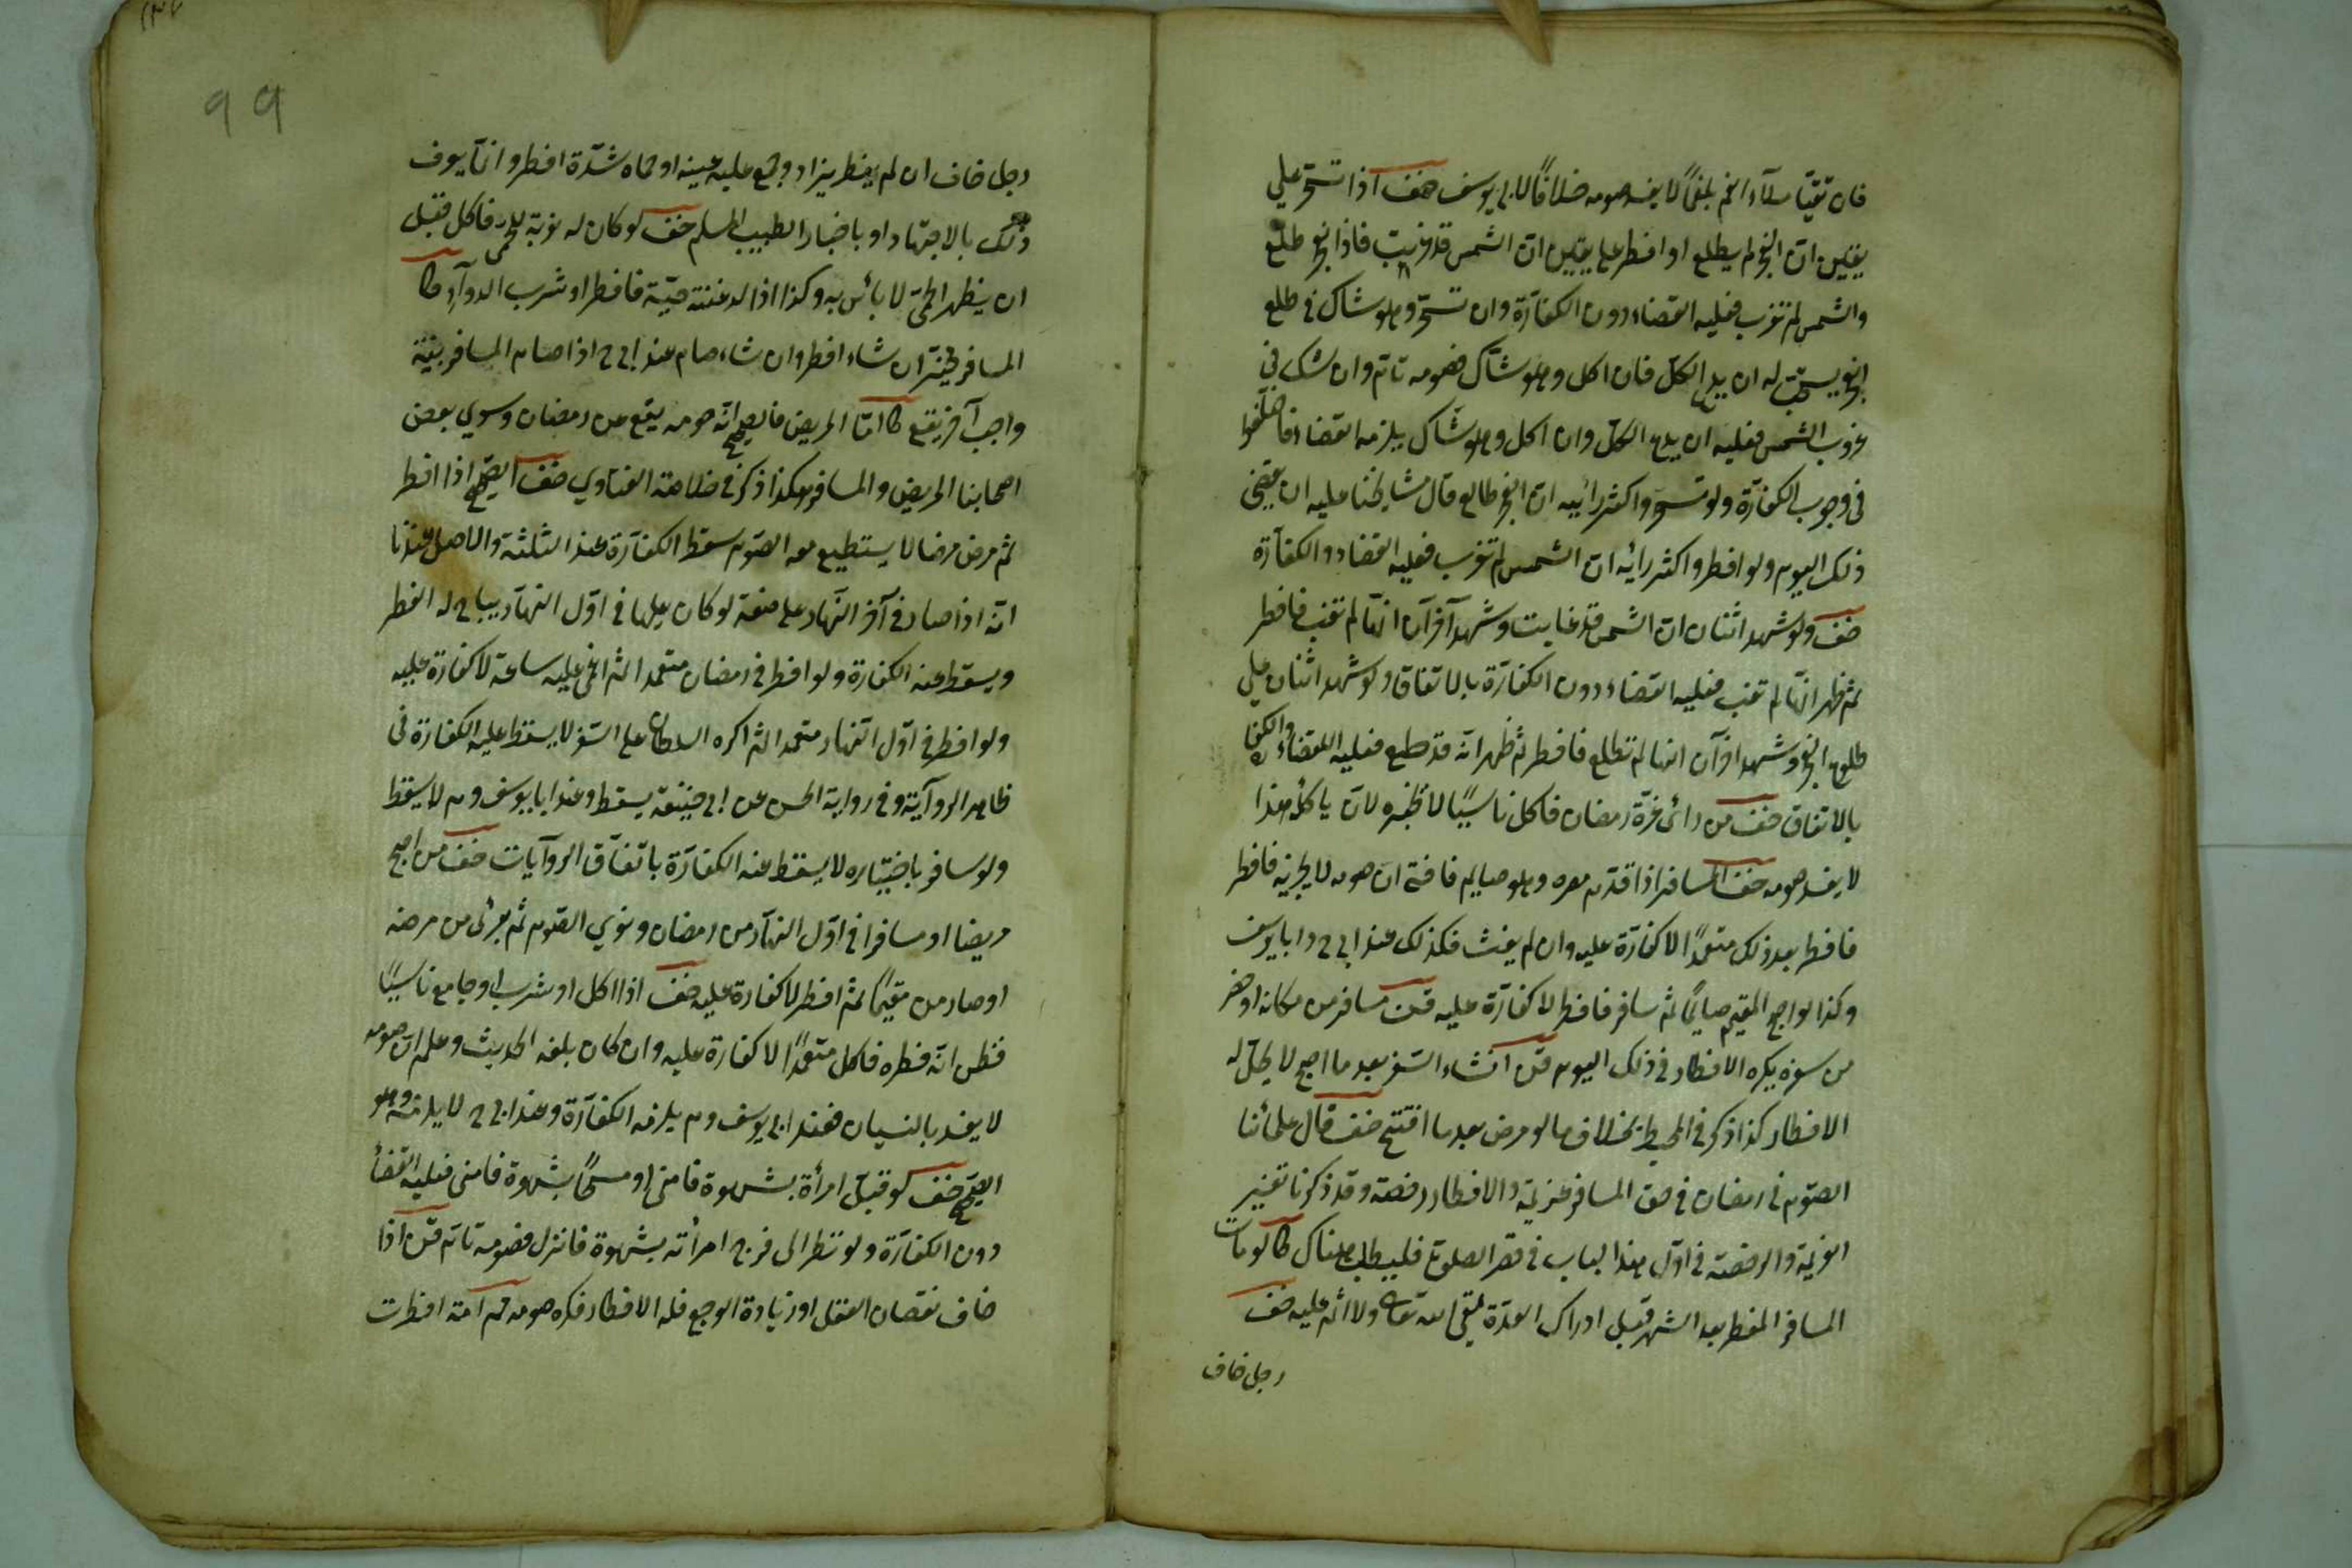 فان تقيأ ملآء الفم بلغمًا لا يفسد صومه خلافًا لابي يوسف خف اذا تسحر علي
يقين ان الفجر لم يطلع او افطر على يقين ان الشمس قد غربت فاذا الفجر طلع
والشمس لم تغرب فعليه القضاء دون الكفارة وان تسحر وهو شاك في طلع
الفجر يستحب له ان يدع الاكل فان اكل وهو شاك فصومه تام وان شك في
غروب الشمس فعليه ان يدع الاكل وان اكل وهو شاك يلزمه القضاء فاختلفوا
في وجوب الكفارة ولو تسحر واكثر رائيه ان الفجر طالع قال مشايخنا عليه ان يقضي
ذلك اليوم ولو افطر واكثر رائه ان الشمس لم تغرب فعليه القضاء والكفارة
خف ولو شهد اثنان ان الشمس قد غابت وشهد آخرآن انها لم تغب فافطر
ثم ظهر انها لم تغب فعليه القضاء دون الكفارة بالاتفاق ولو شهد اثنان علي
طلوع الفجر وشهد اخرآن انها لم تطلع فافطر ثم ظهر انه قد طلع فعليه القضاء والكفارة
بالاتفاق خف من رائى غرة رمضان فاكل ناسيًا لا تخبره لان ياكله هذا
لا يفسد صومه خف المسافر اذا قدم مصره وهو صايم فافتى ان صومه لا يجزيه فافطر
فافطر بعد ذلك متعمدًا لا كفارة عليه وان لم يفت فكذلك عند ابي ح وابا يوسف
وكذا لو اصبح المقيم صايمًا ثم سافر فافطر لا كفارة عليه قن مسافر من مكانه او حضر
من سفره يكره الافطار في ذلك اليوم قن انشاء السفر بعد ما اصبح لا يحل له
الافطار كذا ذكر في المحيط بخلاف ما لو مرض بعد ما افتتح خف قال علمائنا
الصوم في رمضان في حق المسافر عزيمة والافطار رخصة وقد ذكرنا تفسير
العزيمة والرخصة في اول هذا الباب في قصر الصلوة فليطلب هناك كا لو مات
المسافر المفطر بعد الشهر قبل ادراك العدة لقي الله تعالى ولا اثم عليه خف
رجل خاف
٩٩
رجل خاف ان لم يفطر يزداد وجع عليه عينه او حماه شدة افطر وانما يعرف
ذلك بالاجتهاد او باخبار الطبيب المسلم خف لو كان له نوبة للحمى فاكل قبل
ان يظهر الحمى لا بائس به وكذا اذا لدغته حية فافطر او شرب الدوآء كا
المسافر مخير ان شاء افطر وان شاء صام عند ابي ح اذا صام المسافر بنية
واجب آخر يقع كا اما المريض فالصحيح انه صومه يقع عن رمضان وسوي بعض
اصحابنا المريض والمسافر هكذا ذكر في خلاصة الفتاوي خف الصحيح اذا افطر
ثم مرض مرضا لا يستطيع معه الصوم سقط الكفارة عند الثلثة والاصل عندنا
انه اذا صار في آخر النهار على صفة لو كان عليها في اول النهار يباح له الفطر
ويسقط عنه الكفارة ولو افطر في رمضان متعمدا ثم اغمي عليه ساعة لا كفارة عليه
ولو افطر في اول النهار متعمدا ثم اكره السلطان على السفر لا يسقط عليه الكفارة في
ظاهر الروآية وفي رواية الحسن عن ابي حنيفة يسقط وعند ابا يوسف وم لا يسقط
ولو سافر باختياره لا يسقط عنه الكفارة باتفاق الروآيات خف من اصبح
مريضا او مسافرا في اول النهار من رمضان ونوي الصوم ثم برئى من مرضه
او صار من مقيمًا ثم افطر لا كفارة عليه خف اذا اكل او شرب او جامع ناسيًا
فظن انه فطره فاكل متعمدًا لا كفارة عليه وان كان بلغه الحديث وعلم ان صومه
لا يفسد بالنسيان فعند ابي يوسف وم يلزمه الكفارة وعند ابي ح لا يلزمه وهو
الصحيح خف لو قبل امرأة بشهوة فامنى او مسحًا بشهوة فامنى فعليه القضا
دون الكفارة ولو نظر الى فرج امرأته بشهوة فانزل فصومه تام قن اذا
خاف نقصان العقل او زيادة الوجع فله الافطار فكره صومه قم امة افطرت